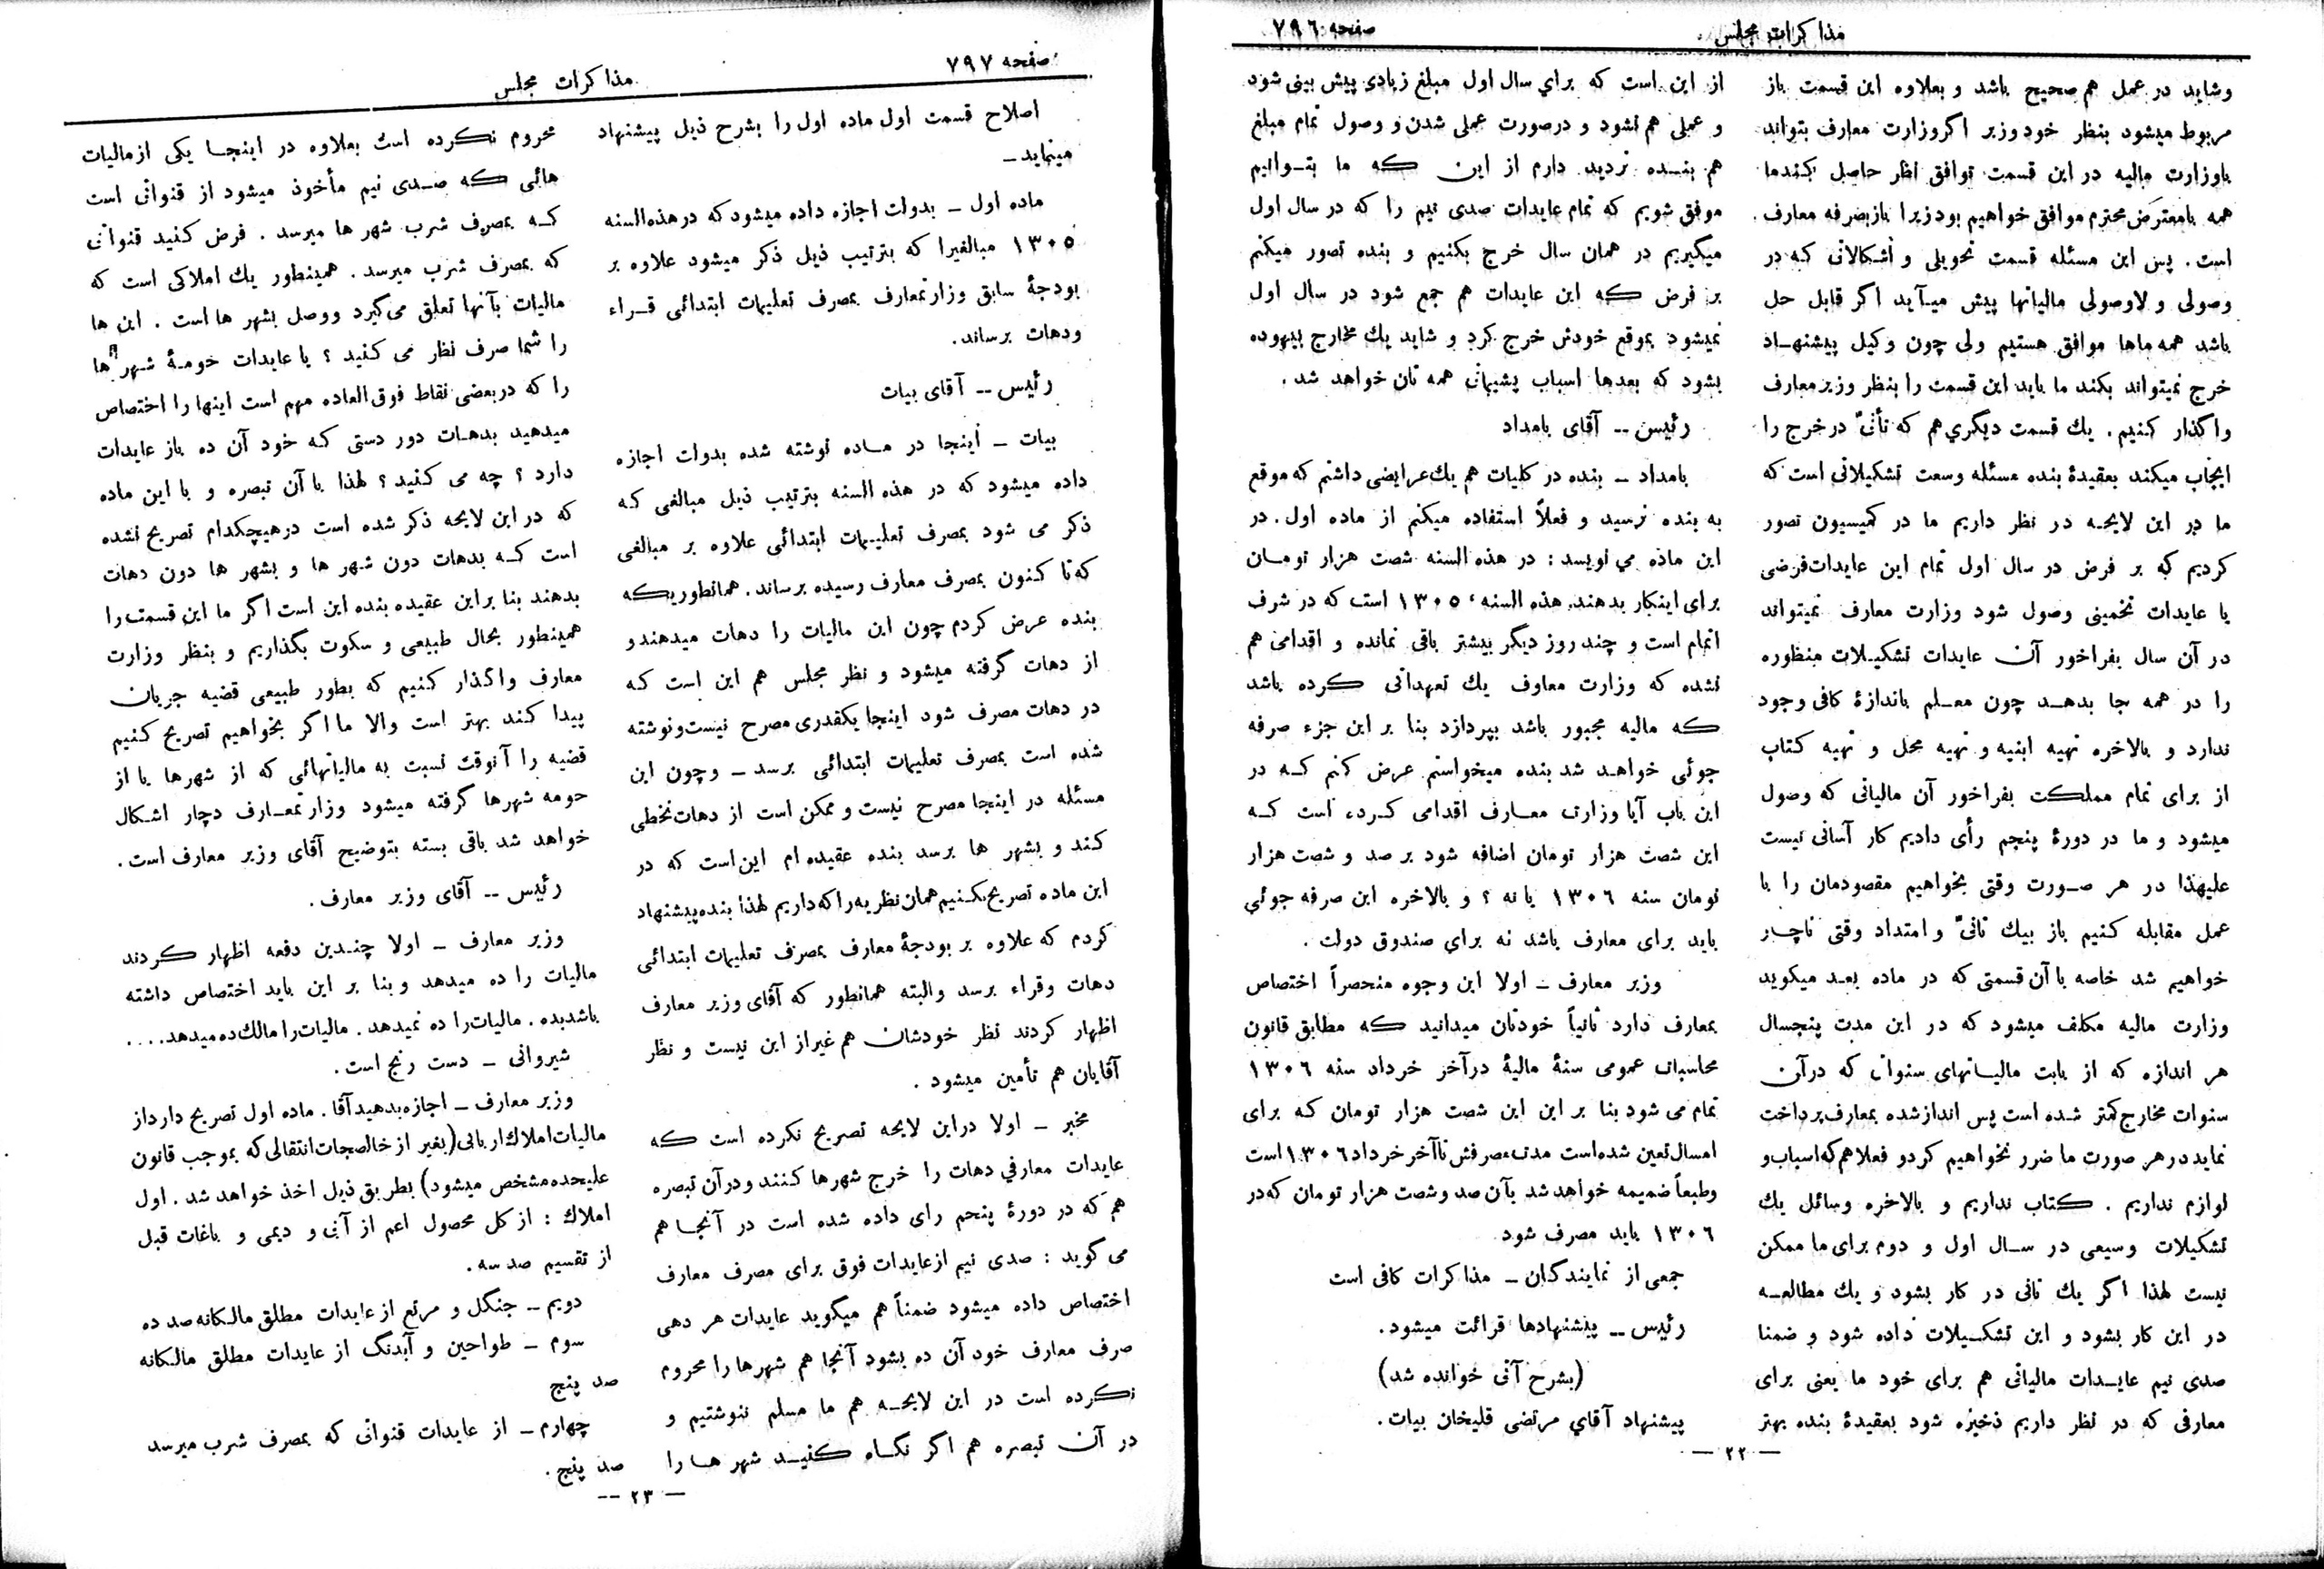 مذاکرات مجلس
صفحه ۷۹۶
وشاید در عمل هم صحیح باشد و بعلاوه این قسمت باز
مربوط میشود بنظر خود وزیر اگر وزارت معارف بتواند
باوزارت مالیه در این قسمت توافق نظر حاصل کند ما
همه بامعترض محترم موافق خواهیم بود زیرا باز بصرفه معارف
است . پس این مسئله قسمت تحویلی و اشکالاتی که در
وصولی و لاوصولی مالیاتها پیش میآید اگر قابل حل
باشد همه ماها موافق هستیم ولی چون وکیل پیشنهاد
خرج نمیتواند بکند ما باید این قسمت را بنظر وزیر معارف
واگذار کنیم . یك قسمت دیگری هم که تأنی در خرج را
ایجاب میکند بعقیدهٔ بنده مسئله وسعت تشکیلاتی است که
ما در این لایحه در نظر داریم ما در کمیسیون تصور
کردیم که بر فرض در سال اول تمام این عایدات فرضی
یا عایدات تخمینی وصول شود وزارت معارف نمیتواند
در آن سال بفراخور آن عایدات تشکیلات منظوره
را در همه جا بدهد چون معلم باندازهٔ کافی وجود
ندارد و بالاخره تهیه ابنیه و تهیه محل و تهیه کتاب
از برای تمام مملکت بفراخور آن مالیاتی که وصول
میشود و ما در دورهٔ پنجم رأی دادیم کار آسانی نیست
علیهذا در هر صورت وقتی بخواهیم مقصودمان را با
عمل مقابله کنیم باز بیك تانی و امتداد وقتی ناچار
خواهیم شد خاصه با آن قسمتی که در ماده بعد میگوید
وزارت مالیه مکلف میشود که در این مدت پنجسال
هر اندازه که از بابت مالیاتهای سنواتی که در آن
سنوات مخارج کمتر شده است پس انداز شده بمعارف پرداخت
نماید در هر صورت ما ضرر نخواهیم کرد و فعلا هم که اسباب و
لوازم نداریم . کتاب نداریم و بالاخره وسائل یك
تشکیلات وسیعی در سال اول و دوم برای ما ممکن
نیست لهذا اگر یك تانی در کار بشود و یك مطالعه
در این کار بشود و این تشکیلات داده شود و ضمنا
صدی نیم عایدات مالیاتی هم برای خود ما یعنی برای
معارفی که در نظر داریم ذخیره شود بعقیدهٔ بنده بهتر
از این است که برای سال اول مبلغ زیادی پیش بینی شود
و عملی هم نشود و درصورت عملی شدن و وصول تمام مبلغ
هم بنده تردید دارم از این که ما بتوانیم
موفق شویم که تمام عایدات صدی نیم را که در سال اول
میگیریم در همان سال خرج بکنیم و بنده تصور میکنم
بر فرض که این عایدات هم جمع شود در سال اول
نمیشود بموقع خودش خرج کرد و شاید یك مخارج بیهوده
بشود که بعدها اسباب پشیمانی همه تان خواهد شد .
رئیس -- آقای بامداد
بامداد - بنده در کلیات هم یك عرایضی داشتم که موقع
به بنده نرسید و فعلاً استفاده میکنم از ماده اول . در
این ماده می نویسد : در هذه السنه شصت هزار تومان
برای اینکار بدهند. هذه السنه ۱۳۰۵ است که در شرف
اتمام است و چند روز دیگر بیشتر باقی نمانده و اقدامی هم
نشده که وزارت معاوف یك تعهداتی کرده باشد
که مالیه مجبور باشد بپردازد بنا بر این جزء صرفه
جوئی خواهد شد بنده میخواستم عرض کنم که در
این باب آیا وزارت معارف اقدامی کرده است که
این شصت هزار تومان اضافه شود بر صد و شصت هزار
تومان سنه ۱۳۰۶ یا نه ؟ و بالاخره این صرفه جوئی
باید برای معارف باشد نه برای صندوق دولت .
وزیر معارف - اولا این وجوه منحصراً اختصاص
بمعارف دارد ثانیاً خودتان میدانید که مطابق قانون
محاسبات عمومی سنهٔ مالیهٔ در آخر خرداد سنه ۱۳۰۶
تمام می شود بنا بر این این شصت هزار تومان که برای
امسال تعین شده است مدت مصرفش تا آخر خرداد ۱۳۰۶ است
وطبعاً ضمیمه خواهد شد بآن صد و شصت هزار تومان که در
۱۳۰۶ باید مصرف شود
جمعی از نمایندگان - مذاکرات کافی است
رئیس -- پیشنهادها قرائت میشود .
(بشرح آتی خوانده شد)
پیشنهاد آقای مرتضی قلیخان بیات .
— ۲۲ —
صفحه ۷۹۷
مذاکرات مجلس
اصلاح قسمت اول ماده اول را بشرح ذیل پیشنهاد
مینماید -
ماده اول - بدولت اجازه داده میشود که در هذه السنه
۱۳۰۵ مبالغیرا که بترتیب ذیل ذکر میشود علاوه بر
بودجهٔ سابق وزارتمعارف بمصرف تعلیمات ابتدائی قراء
ودهات برساند .
رئیس -- آقای بیات
بیات - اینجا در ماده نوشته شده بدولت اجازه
داده میشود که در هذه السنه بترتیب ذیل مبالغی که
ذکر می شود بمصرف تعلیمات ابتدائی علاوه بر مبالغی
که تا کنون بمصرف معارف رسیده برساند . همانطوریکه
بنده عرض کردم چون این مالیات را دهات میدهند و
از دهات گرفته میشود و نظر مجلس هم این است که
در دهات مصرف شود اینجا یکقدری مصرح نیست و نوشته
شده است بمصرف تعلیمات ابتدائی برسد - وچون این
مسئله در اینجا مصرح نیست و ممکن است از دهات تخطی
کند و بشهر ها برسد بنده عقیده ام این است که در
این ماده تصریح بکنیم همان نظریه را که داریم لهذا بنده پیشنهاد
کردم که علاوه بر بودجهٔ معارف بمصرف تعلیمات ابتدائی
دهات وقراء برسد والبته همانطور که آقای وزیر معارف
اظهار کردند نظر خودشان هم غیر از این نیست و نظر
آقایان هم تأمین میشود .
مخبر - اولا دراین لایحه تصریح نکرده است که
عایدات معارفی دهات را خرج شهرها کنند و در آن تبصره
هم که در دورهٔ پنجم رای داده شده است در آنجا هم
می گوید : صدی نیم از عایدات فوق برای مصرف معارف
اختصاص داده میشود ضمناً هم میگوید عایدات هر دهی
صرف معارف خود آن ده بشود آنجا هم شهرها را محروم
نکرده است در این لایحه هم ما مسلم ننوشتیم و
در آن تبصره هم اگر نگاه کنید شهر ها را
محروم نکرده است بعلاوه در اینجا یکی از مالیات
هائی که صدی نیم مأخوذ میشود از قنواتی است
که بمصرف شرب شهر ها میرسد . فرض کنید قنواتی
که بمصرف شرب میرسد . همینطور یك املاکی است که
مالیات بآنها تعلق می گیرد ووصل بشهر ها است . این ها
را شما صرف نظر می کنید ؟ یا عایدات حومهٔ شهر ها
را که در بعضی نقاط فوق العاده مهم است اینها را اختصاص
میدهید بدهات دور دستی که خود آن ده باز عایدات
دارد ؟ چه می کنید ؟ لهذا با آن تبصره و با این ماده
که در این لایحه ذکر شده است درهیچکدام تصریح نشده
است که بدهات دون شهر ها و بشهر ها دون دهات
بدهند بنا براین عقیده بنده این است اگر ما این قسمت را
همینطور بحال طبیعی و سکوت بگذاریم و بنظر وزارت
معارف واگذار کنیم که بطور طبیعی قضیه جریان
پیدا کند بهتر است والا ما اگر بخواهیم تصریح کنیم
قضیه را آنوقت نسبت به مالیاتهائی که از شهرها یا از
حومه شهرها گرفته میشود وزارتمعارف دچار اشکال
خواهد شد باقی بسته بتوضیح آقای وزیر معارف است .
رئیس -- آقای وزیر معارف .
وزیر معارف - اولا چندین دفعه اظهار کردند
مالیات را ده میدهد و بنا بر این باید اختصاص داشته
باشد بده . مالیات را ده نمیدهد . مالیات را مالك ده میدهد . . . .
شیروانی - دست رنج است .
وزیر معارف - اجازه بدهید آقا . ماده اول تصریح دارد از
مالیات املاك اربابی (بغیر از خالصجات انتقالی که بموجب قانون
علیحده مشخص میشود) بطریق ذیل اخذ خواهد شد . اول
املاك : از کل محصول اعم از آبی و دیمی و باغات قبل
از تقسیم صد سه .
دویم - جنگل و مرتع از عایدات مطلق مالکانه صد ده
سوم - طواحین و آبدنگ از عایدات مطلق مالکانه
صد پنج
چهارم - از عایدات قنواتی که بمصرف شرب میرسد
صد پنج .
— ۲۳ --